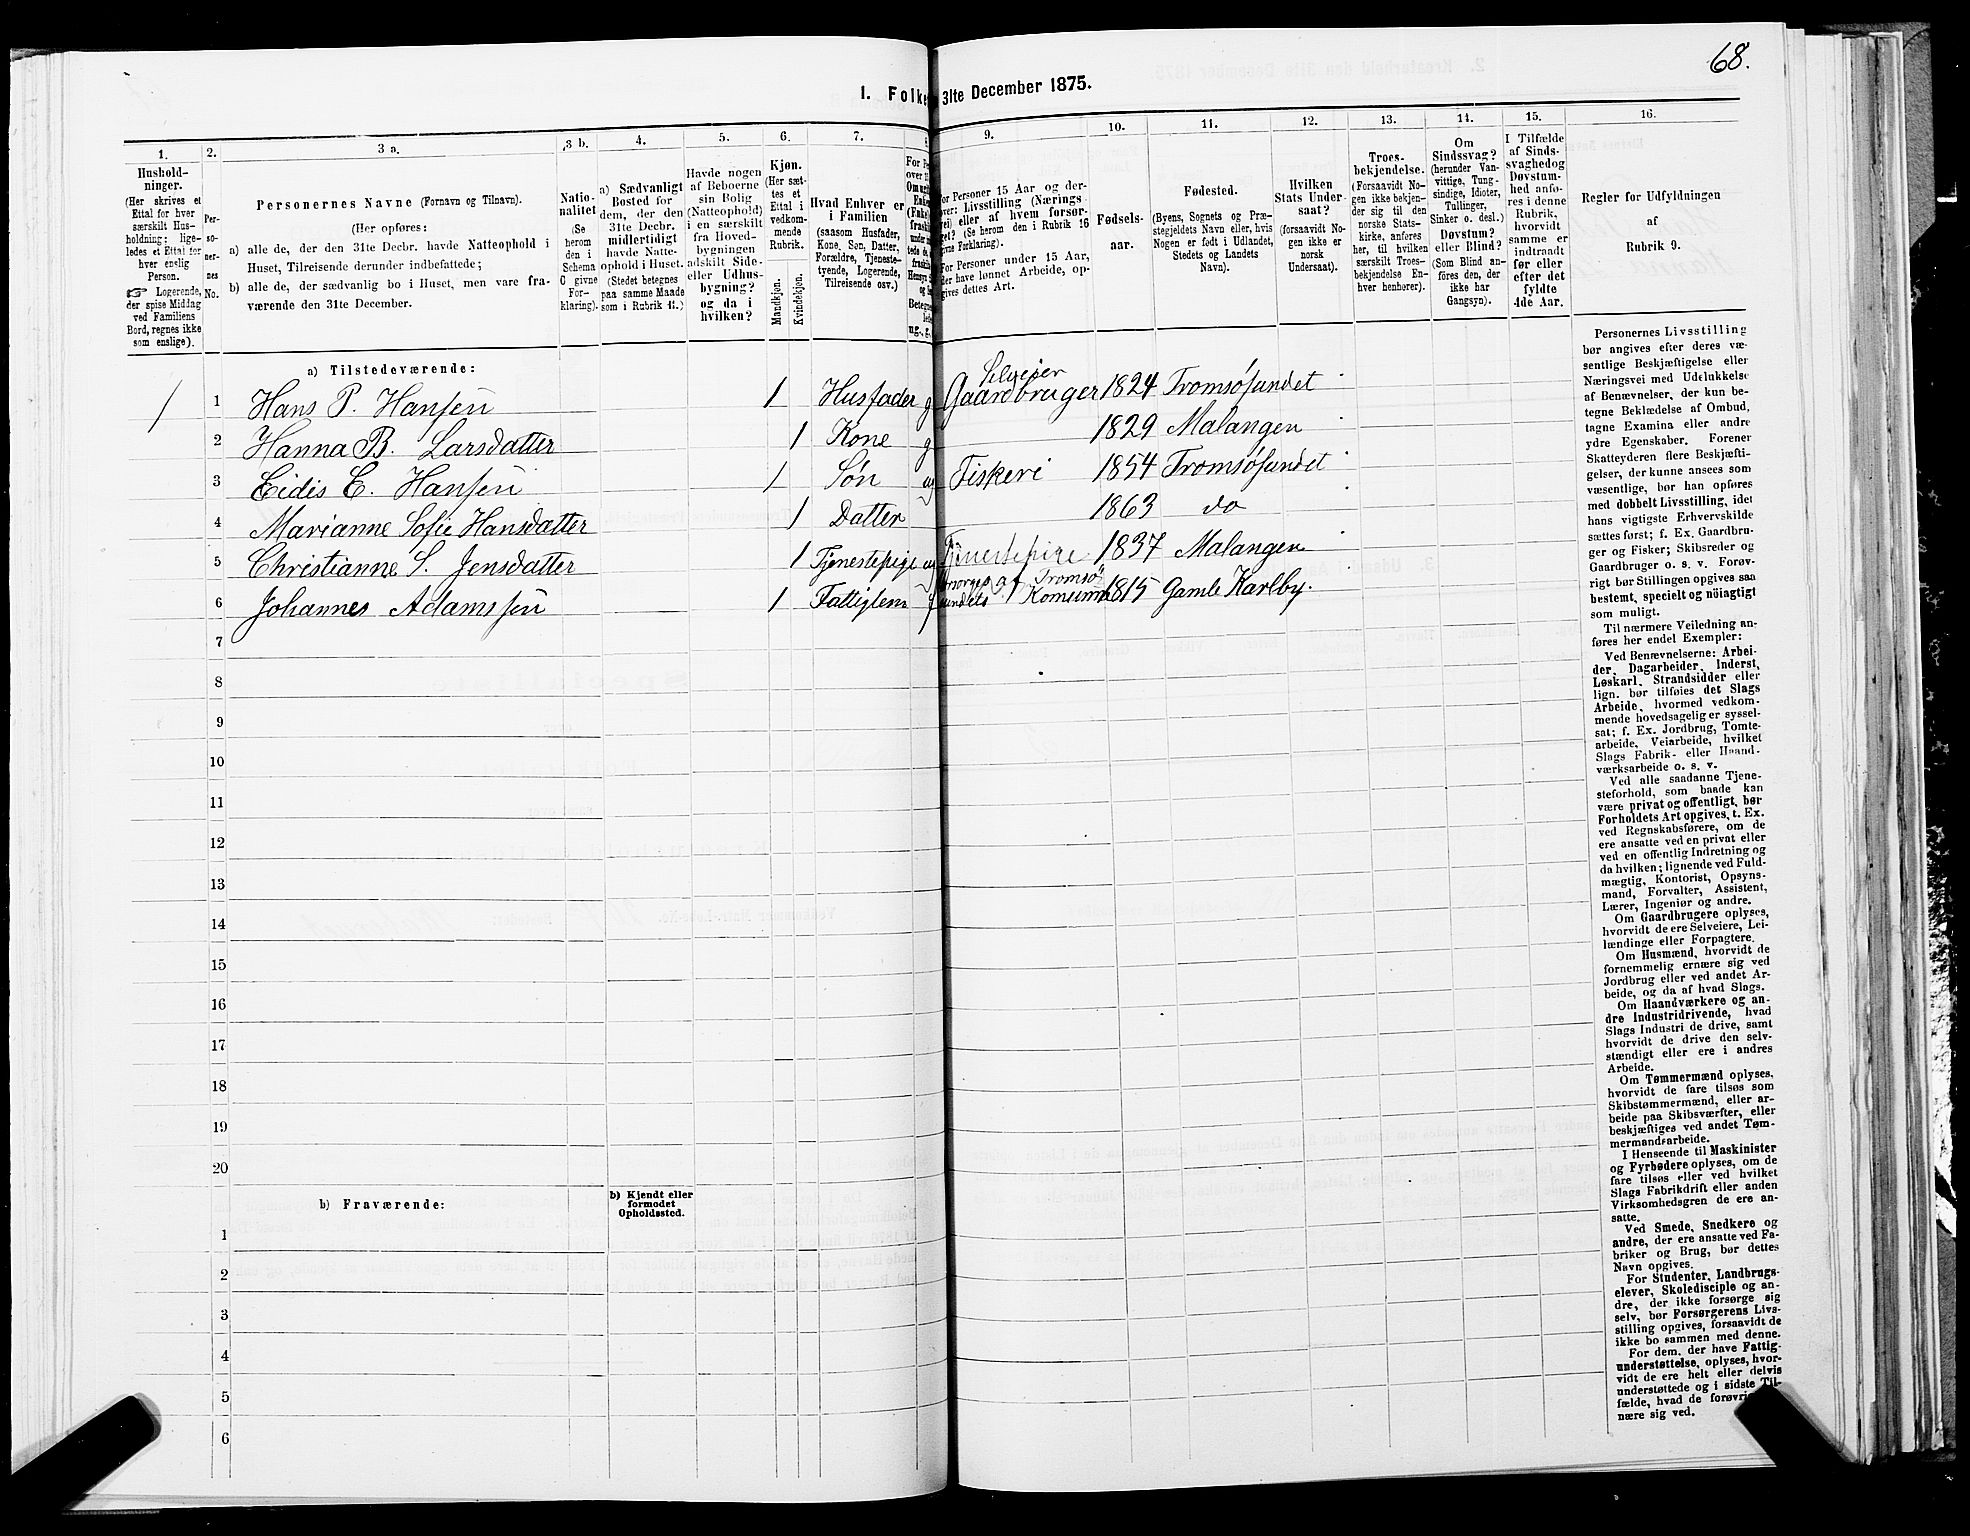 68.
1. Folke 31te December 1875.
1. 2. 3 a. 3 b. 4. 5. 6. 7. 8 9. 10. 11. 12. 13. 14. 15. 16.
Hushold-
ninger.
(Her skrives et
Ettal for hver
særskilt Hus-
holdning; lige-
ledes et Ettal for
hver enslig
Person.
☞ Logerende,
der spise Middag
ved Familiens
Bord, regnes ikke
som enslige).
Per-
so-
ner-
nes
No.
Personernes Navne (Fornavn og Tilnavn).
(Her opføres:
a) alle de, der den 31te Decbr. havde Natteophold i
Huset, Tilreisende derunder indbefattede;
b) alle de, der sædvanlig bo i Huset, men vare fra-
værende den 31te December.
Natio-
nalitet
(Se
herom
den i
Schema
C givne
For-
klaring).
a) Sædvanligt
Bosted for
dem, der den
31te Decbr.
midlertidigt
havde Natte-
ophold i Huset.
(Stedet betegnes
paa samme Maade
som i Rubrik 11.)
Havde nogen
af Beboerne
sin Bolig
(Natteophold)
i en særskilt
fra Hoved-
bygningen
adskilt Side-
eller Udhus-
bygning?
og da i
hvilken?
Kjøn.
(Her sæt-
tes et
Ettal i
vedkom-
mende
Rubrik.
Mandkjøn.
Kvindekjøn.
Hvad Enhver er
i Familien
(saasom Husfader,
Kone, Søn, Datter,
Forældre, Tjeneste-
tyende, Logerende,
Tilreisende osv.)
For Pe
over 1
Om ugif
Enk
ug., g.
For Personer 15 Aar og der-
over: Livsstilling (Nærings-
vei) eller af hvem forsør-
get? (Se herom den i Rubrik 16
givne Forklaring).
For Personer under 15 Aar,
der have lønnet Arbeide, op-
gives dettes Art.
Fødsels-
aar.
Fødested.
(Byens, Sognets og Præ-
stegjeldets Navn eller, hvis
Nogen er født i Udlandet,
Stedets og Landets
Navn).
Hvilken
Stats Under-
saat?
(forsaavidt No-
gen ikke er
norsk
Undersaat).
Troes-
bekjendelse.
(Forsaavidt No-
gen ikke bekjen-
der sig til den
norske Stats-
kirke, anføres
her, til hvilken
særskilt Troes-
bekjendelse En-
hver henhører).
Om
Sindssvag?
(herunder Van-
vittige, Tung-
sindige, Idioter,
Tullinger,
Sinker o. desl.)
Døvstum?
eller Blind?
(Som Blind an-
føres den, der
ikke har
Gangsyn).
I Tilfælde
af Sinds-
svaghed og
Døvstum-
hed anfø-
res i denne
Rubrik,
hvorvidt
samme er
indtraadt
før eller
efter det
fyldte
4de Aar.
Regler for Udfyldningen
af
Rubrik 9.
a) Tilstedeværende:
1 1 Hans P. Hansen 1 Husfader g Selveier Gaardbruger 1824 Tromsøsundet
2 Hanna B. Larsdatter 1 Kone g 1829 Malangen
3 Eidis E. Hansen 1 Søn ug Fiskeri 1854 Tromsøsundet
4 Marianne Sofie Hansdatter 1 Datter 1863 do
5 Christianne S. Jensdatter 1 Tjenestepige ug Tjenestepige 1837 Malangen
6 Johannes Adamssen 1 Fattiglem f forsørges af Tromsø sundets Komune 1815 Gamle Karlby.
7
8
9
10
11
12
13
14
15
16
17
18
19
20
b) Fraværende:
b) Kjendt eller
formodet
Opholdssted.
1
2
3
4
5
6
Personernes Livsstilling
bør angives efter deres væ-
sentlige Beskjæftigelse eller
Næringsvei med Udelukkelse
af Benævnelser, der kun be-
tegne Beklædelse af Ombud,
tagne Examina eller andre
ydre Egenskaber. Forener
Skatteyderen flere Beskjæfti-
gelser, der kunne ansees som
væsentlige, bør han opføres
med dobbelt Livsstilling, idet
hans vigtigste Erhvervskilde
sættes først; f. Ex. Gaardbru-
ger og Fisker; Skibsreder og
Gaardbruger o. s. v. Forøv-
rigt bør Stillingen opgives saa
bestemt, specielt og nøiagtigt
som muligt.
Til nærmere Veiledning an-
føres her endel Exempler:
Ved Benævnelserne: Arbei-
der, Dagarbeider, Inderst,
Løskarl, Strandsidder eller
lign. bør tilføies det Slags
Arbeide, hvormed vedkom-
mende hovedsagelig er syssel-
sat; f. Ex. Jordbrug, Tomte-
arbeide, Veiarbeide, hvilket
Slags Fabrik- eller Haand-
værksarbeide o. s. v.
Ved alle saadanne Tjene-
steforhold, som baade kan
være privat og offentligt, bør
Forholdets Art opgives, t. Ex.
ved Regnskabsførere, om de
ere ansatte ved en privat eller
ved en offentlig Indretning og
da hvilken; lignende ved Fuld-
mægtig, Kontorist, Opsyns-
mand, Forvalter, Assistent,
Lærer, Ingeniør og andre.
Om Gaardbrugere oplyses,
hvorvidt de ere Selveiere, Lei-
lændinge eller Forpagtere.
Om Husmænd, hvorvidt de
fornemmelig ernære sig ved
Jordbrug eller ved andet Ar-
beide, og da af hvad Slags.
Om Haandværkere og an-
dre Industridrivende, hvad
Slags Industri de drive, samt
hvorvidt de drive den selv-
stændigt eller ere i andres
Arbeide.
Om Tømmermænd oplyses,
hvorvidt de fare tilsøs som
Skibstømmermænd, eller ar-
beide paa Skibsværfter, eller
beskjæftiges ved andet Tøm-
mermandsarbeide.
I Henseende til Maskinister
og Fyrbødere oplyses, om de
fare tilsøs eller ved hvilket
Slags Fabrikdrift eller anden
Virksomhedsgren de ere an-
satte.
Ved Smede, Snedkere og
andre, der ere ansatte ved Fa-
briker og Brug, bør dettes
Navn opgives.
For Studenter, Landbrugs-
elever, Skoledisciple og an-
dre, der ikke forsørge sig
selv, bør Forsørgerens Livs-
stilling opgives, forsaavidt de
ikke bo sammen med denne.
For dem, der have Fattig-
understøttelse, oplyses, hvor-
vidt de ere helt eller delvis
understøttede og i sidste Til-
fælde, hvad de forøvri
nære sig ved.